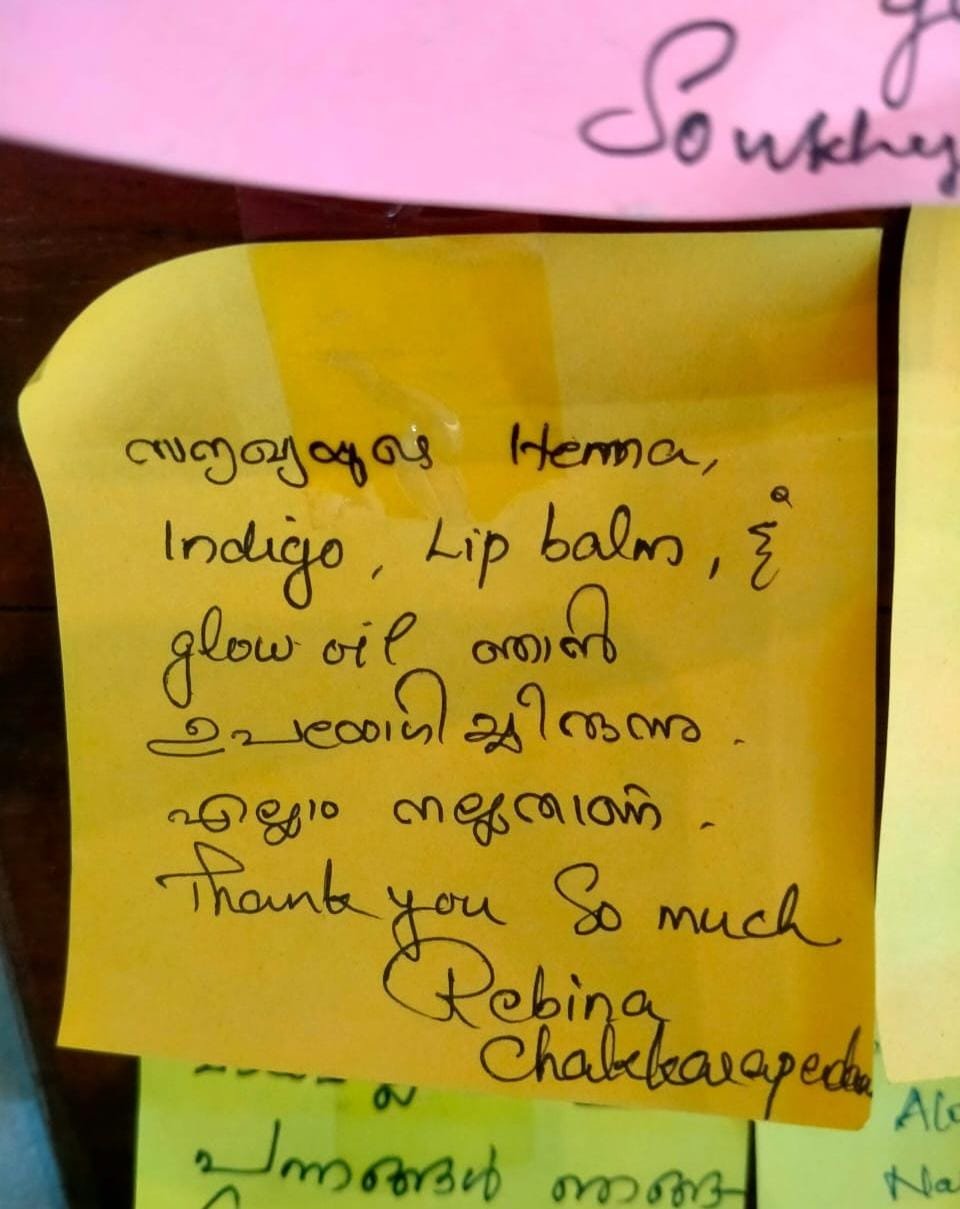 Soukhy
സൗഖ്യയുടെ Henna,
Indigo, Lip balm, &
glow oil ഞാൻ
ഉപയോഗിച്ചിരുന്നു.
എല്ലാം നല്ലതാണ്.
Thank you So much
Rebina
Chakkarapedan
ഞങ്ങ
Na